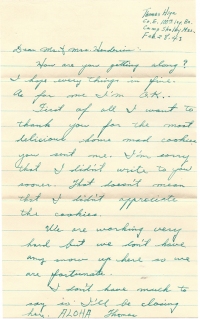 Thomas
Co. E. 442 Inf. Bn.
Camp Shelby, Miss.
Feb. 28, 43
Dear Mr. & Mrs.
How are you getting along?
I hope every things in fine.
As for me I'm O.K.
First of all I want to
thank you for the most
delicious home mad cookies
you sent me. I'm sorry
that I didn't write to you
sooner. That doesn't mean
that I didn't appreciate
the cookies.
We are working very
hard but we don't have
any snow up here so we
are fortunate.
I don't have much to
say so I'll be closing
here. ALOHA Thomas